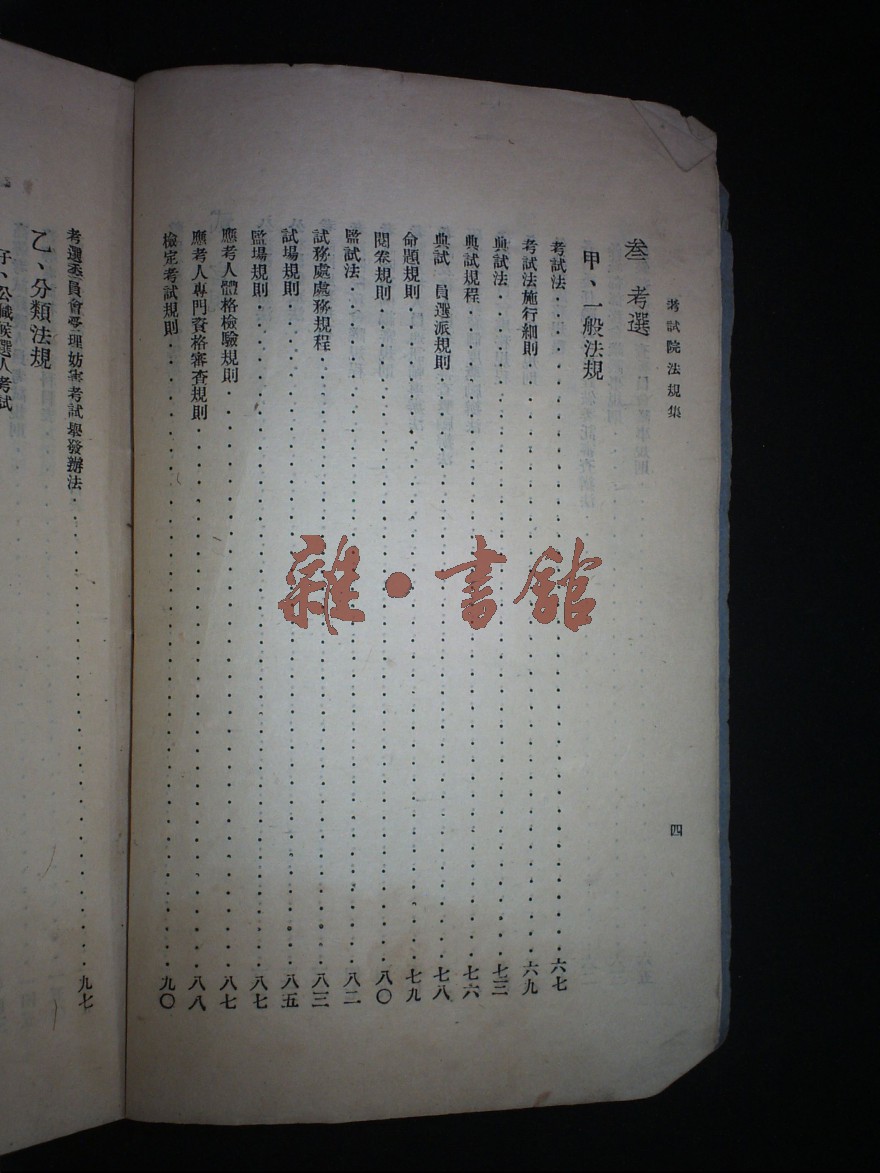 考試院法規集
四
叁 考選
甲、一般法規
考試法 六七
考試法施行細則 六九
典試法 七三
典試規程 七六
典試 員選派規則 七八
命題規則 七九
閱卷規則 八〇
監試法 八二
試務處處務規程 八三
試場規則 八五
監場規則 八七
應考人體格檢驗規則 八七
應考人專門資格審查規則 八八
檢定考試規則 九〇
考選委員會受理妨害考試舉發辦法 九七
乙、分類法規
子、公職候選人考試
雜·書館